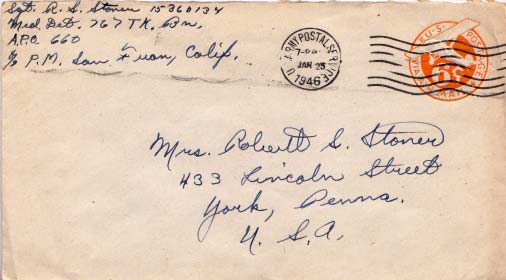 Sgt. R. S. Stoner 15360134
Med. Det. 767 TK. Bn.
A.P.O. 660
c/o P.M. San Fran, Calif.
U.S. ARMY POSTAL SERVICE
JAN 23
1946
U.S. POSTAGE
6¢
AIR MAIL
Mrs. Robert S. Stoner
433 Lincoln Street
York, Penna.
U. S. A.